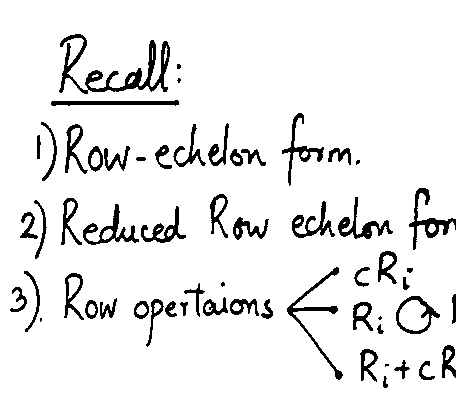 Recall:
1) Row-echelon form.
2) Reduced Row echelon for
cRi
3). Row opertaions
Ri
Ri + cR